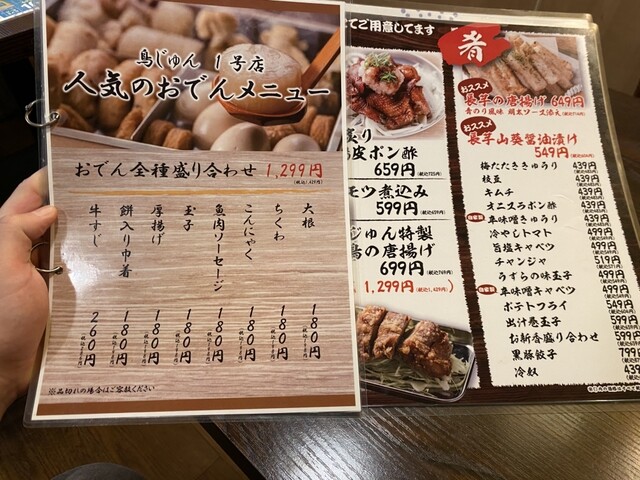 鳥じゅん 1号店
人気のおでんメニュー
おでん全種盛り合わせ 1,299円
(税込1,429円)
大根 180円
ちくわ 180円
こんにゃく 180円
魚肉ソーセージ 180円
玉子 180円
厚揚げ 180円
餅入り巾着 180円
牛すじ 260円
※品切れの場合はご容赦ください
てご用意してます
炙り
皮ポン酢
659円
モツ煮込み
599円
じゅん特製
鳥の唐揚げ
699円
1,299円
肴
おススメ
長芋の唐揚げ 649円
青のり風味 明太ソース添え
おススメ
長芋山葵醤油漬け
549円
梅たたききゅうり 439円
枝豆 439円
キムチ 439円
オニスラポン酢 439円
自家製 辛味噌きゅうり 439円
冷やしトマト 499円
旨塩キャベツ 499円
チャンジャ 519円
うずらの味玉子 499円
自家製 辛味噌キャベツ 499円
ポテトフライ 499円
出汁巻玉子 599円
お新香盛り合わせ 599円
黒豚餃子 799
冷奴 43